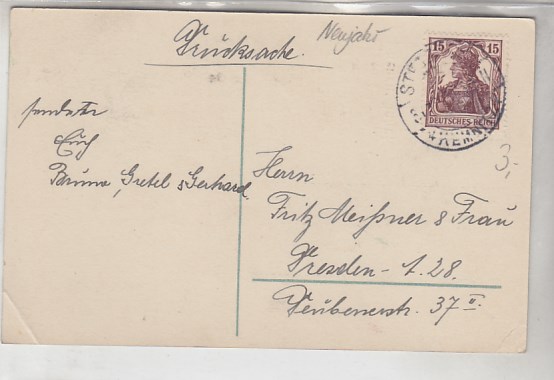 Drucksache.
Neujahr
15 15
DEUTSCHES REICH
3,-
sendet
Euch
Bruno, Gretel & Gerhard.
Herrn
Fritz Meißner & Frau
Dresden - A. 28.
Deubenerstr. 37 II.